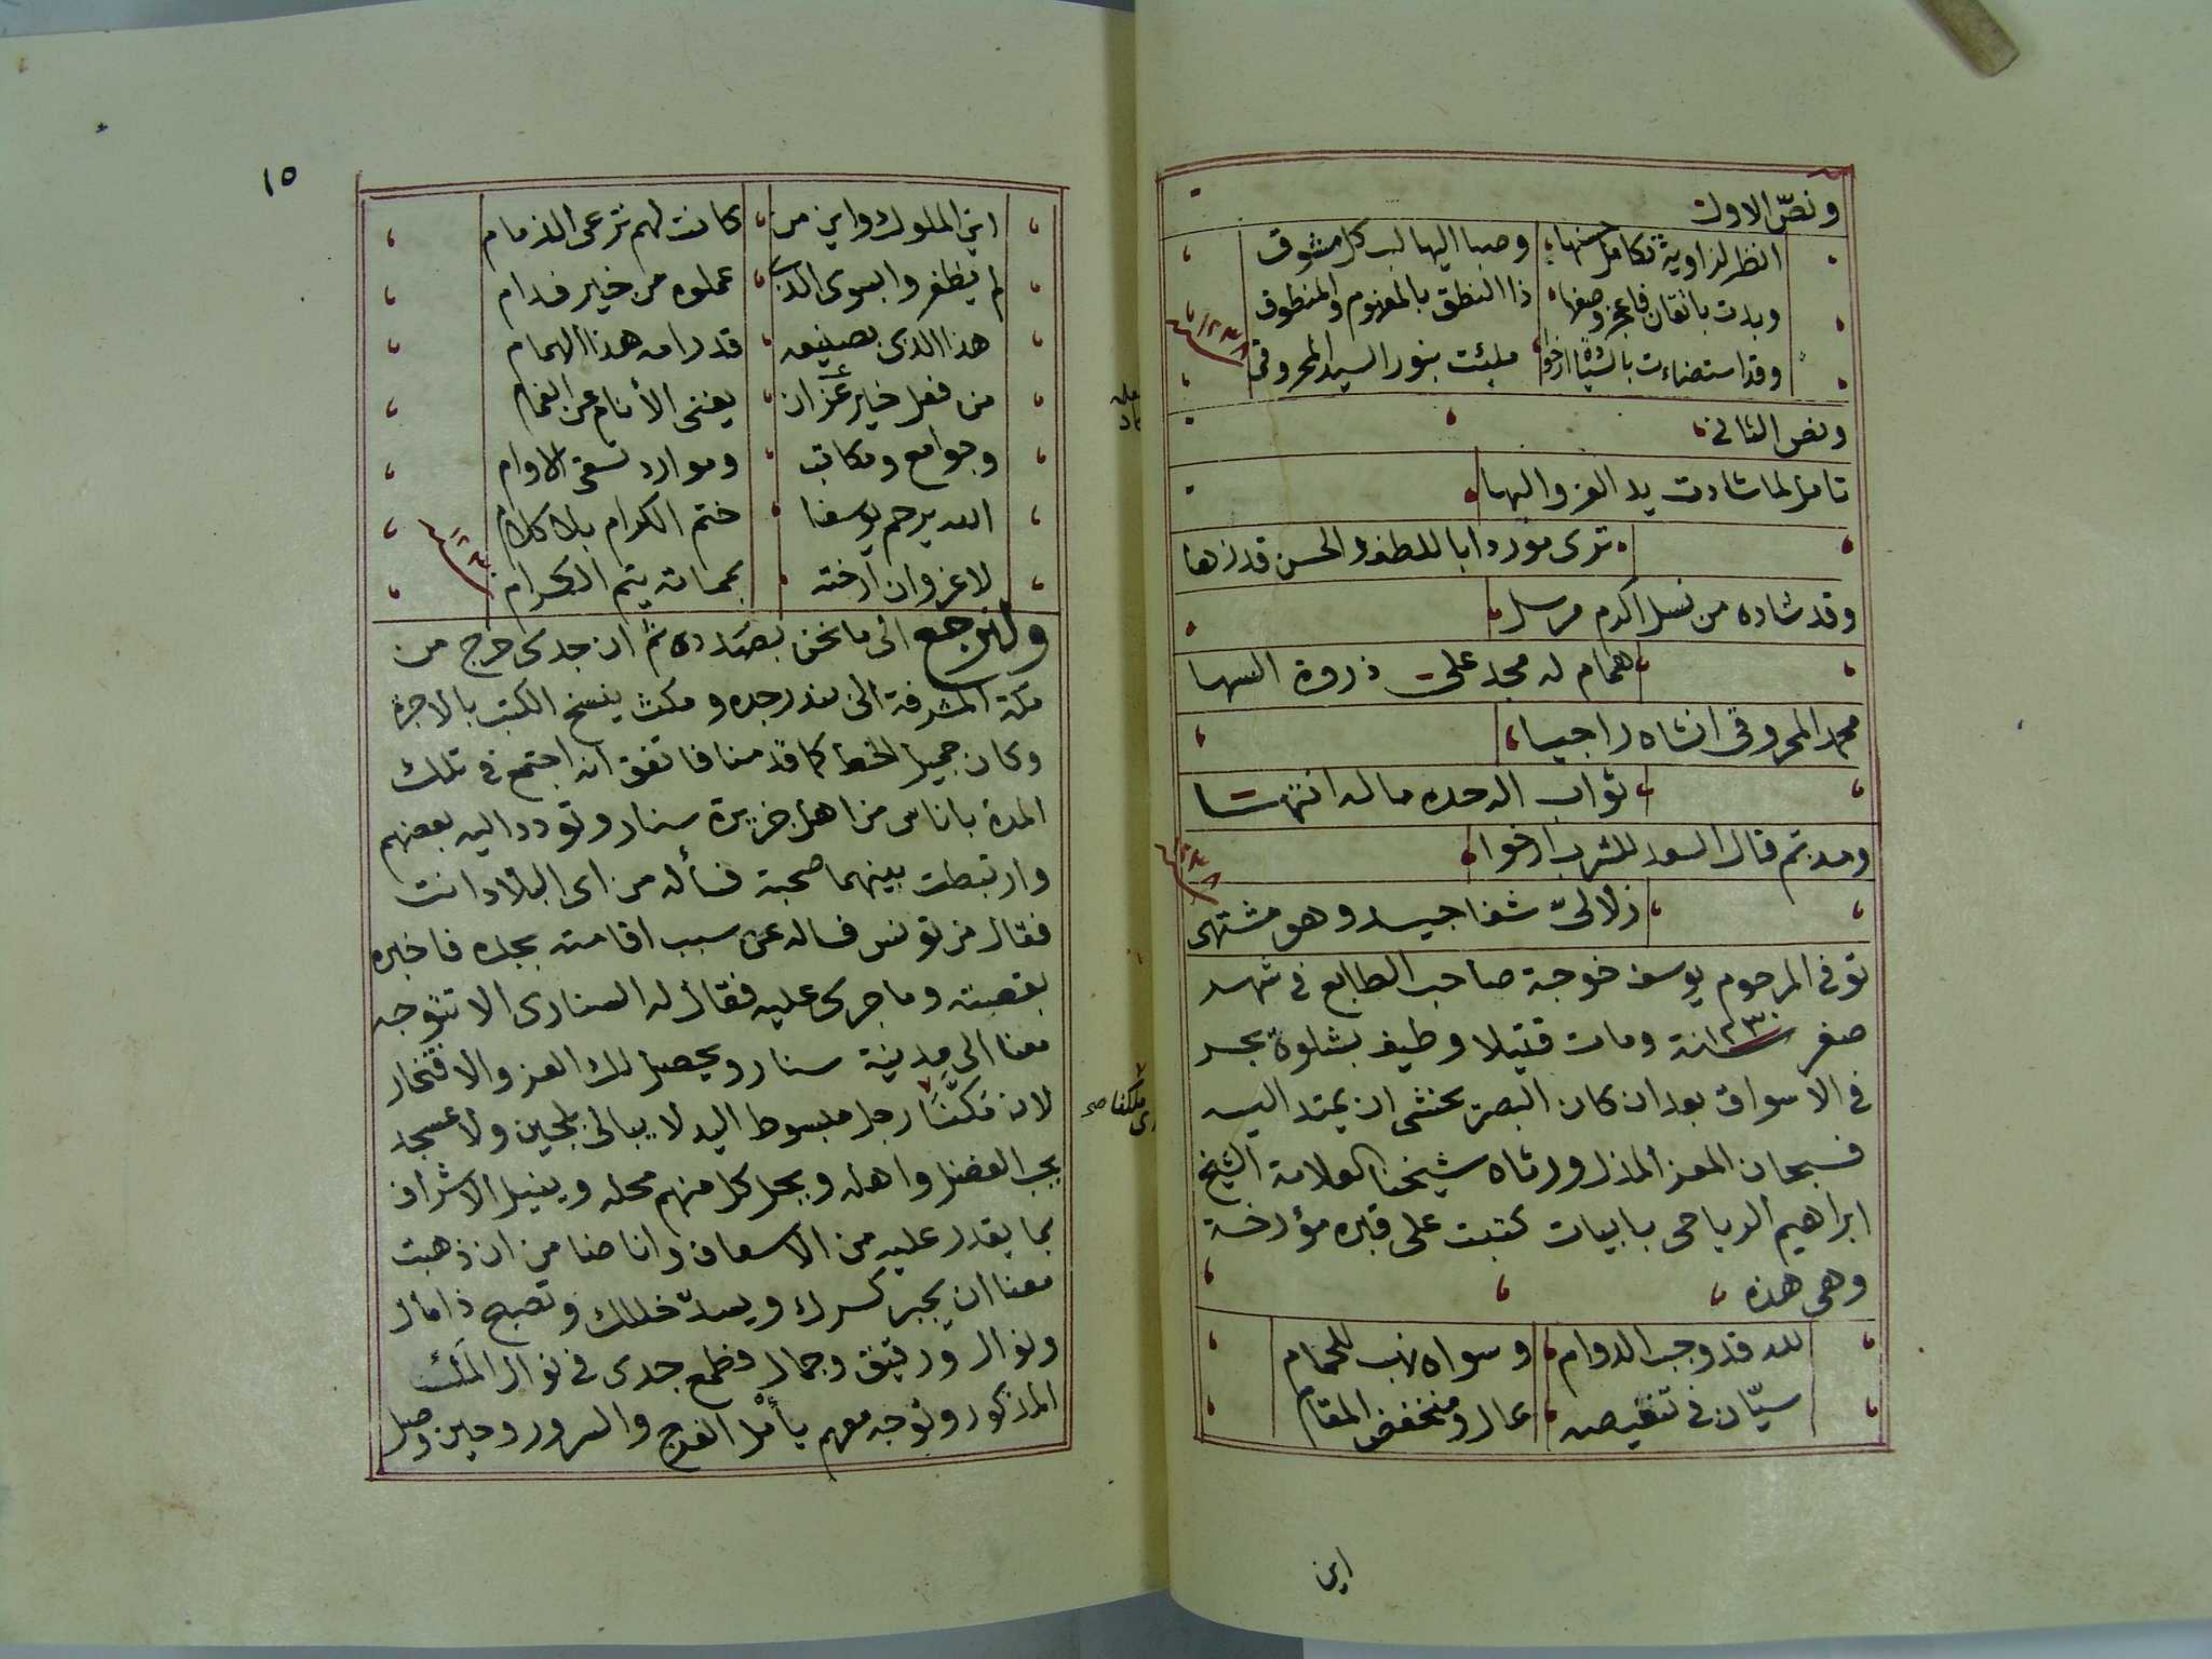 ونصّ الاول
انظر لزاوية تكامل حسنها وصبا اليها لب كل مشوق
وبدت باتقان فاعجز وصفها ذا النطق بالمفهوم والمنطوق
وقد استضاءت بالسنا ارخوا ملئت بنور السيد المحروقي
١٢٣٨
ونص الثاني
تامل لما شادت يد العز والبها
ترى موردا باللطف والحسن قد زها
وقد شاده من نسل اكرم مرسل
همام له مجد على ذروة السها
محمد المحروقى انشاه راجيا
ثواب الله حده ماله انتها
ومذ تم قال السعد للشرب ارخوا
زلالى شفا جيد وهو مشتهى
توفى المرحوم يوسف خوجة صاحب الطابع فى شهر
صفر سنة ١٢٣٠ ومات قتيلا وطيف بشلوه يجر
فى الاسواق بعد ان كان البصر يخشى ان يمتد اليه
فسبحان المعز المذل ورثاه شيخنا العلامة الشيخ
ابراهيم الرياحى بابيات كتبت على قبره مؤرخة
وهى هذه
لله قد وجب الدوام وسواه نهب للحمام
سيّان فى تنغيصه عال ومنخفض المقام
اين
١٥
اين الملوك واين من كانت لهم ترعى الذمام
لم يظفروا بسوى الذى عملوه من خير قدام
هذا الذى بصنيعه قد رامه هذا الهمام
من فعل خير عزّ ان يغنى الأنام عن الغمام
وجوامع ومكاتب وموارد تسقى الاوام
الله يرحم يوسفا ختم الكرام بلا كلام
لا غرو ان ارخته بمماته يتم الكرام
١٢٣٠
ولنرجع الى ما نحن بصدده ثم ان جدى خرج من
مكة المشرفة الى بندر جده ومكث ينسخ الكتب بالاجرة
وكان جميل الخط كما قدمنا فاتفق انه اجتمع فى تلك
المدة باناس من اهل جزيرة سنار وتودد اليه بعضهم
وارتبطت بينهما صحبة فسأله من اى البلاد انت
فقال من تونس فساله عن سبب اقامته بجده فاخبره
بقصته وما جرى عليه فقال له السنارى الا تتوجه
معنا الى مدينة سنار ويحصل لك العز والافتخار
لان مَكَّنا رجل مبسوط اليد لا يبالى بلجين ولا عسجد
يحب الفضل واهله ويحل كل منهم محله وينيل الاشراف
بما يقدر عليه من الاسعاف وانا ضامن ان ذهبت
معنا ان يجبر كسرك ويسدّ خللك وتصبح ذا مال
ونوال ورقيق وجمال فطمع جدى فى نوال المَكّ
المذكور وتوجه معهم يأمل الفرج والسرور وحين وصل